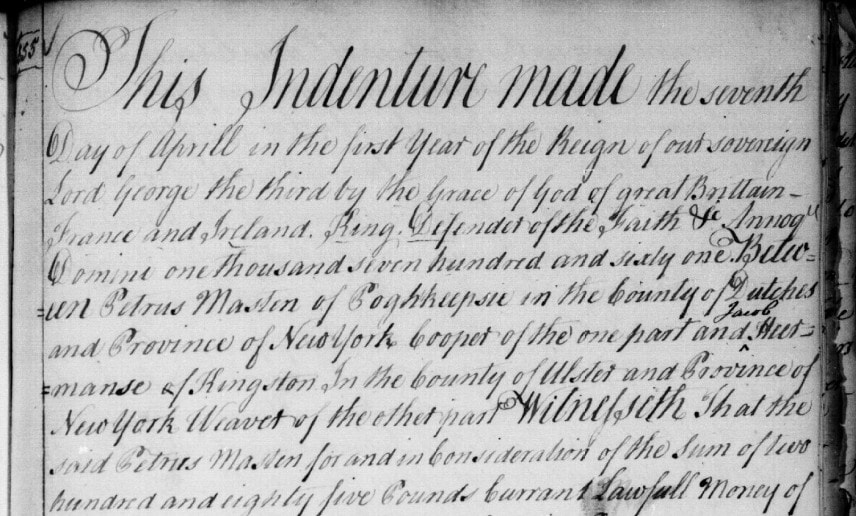 This Indenture made the seventh
Day of Aprill in the first Year of the Reign of our sovereign
Lord George the third by the Grace of God of great Brittain-
France and Ireland. King. Defender of the Faith &c Annoq
Domini one thousand seven hundred and sixty one Betw=
=een Petrus Masten of Poghkeepsie in the County of Dutches
Jacob
and Province of New York Cooper of the one part and ^ Heer=
=manse of Kingston In the County of Ulster and Province of
New York Weaver of the other part Witnesseth That the
said Petrus Masten for and in Consideration of the Sum of two
hundred and eighty five Pounds Currant Lawfull Money of